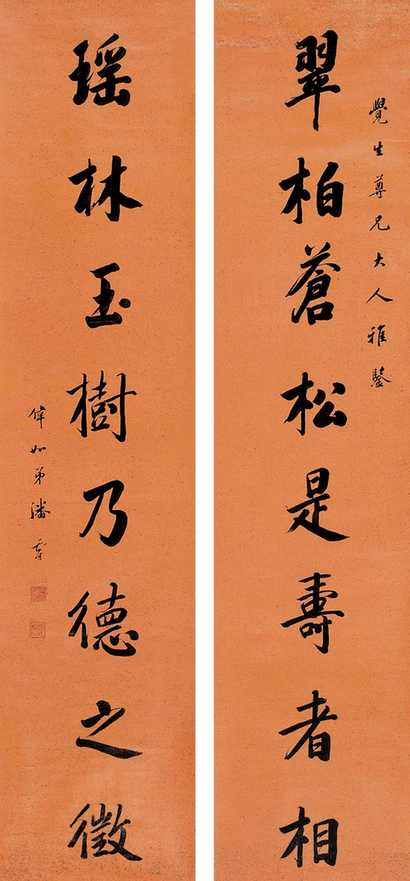 覺生尊兄大人雅鑒
翠柏蒼松是壽者相
瑶林玉樹乃德之徵
偉如弟潘霨